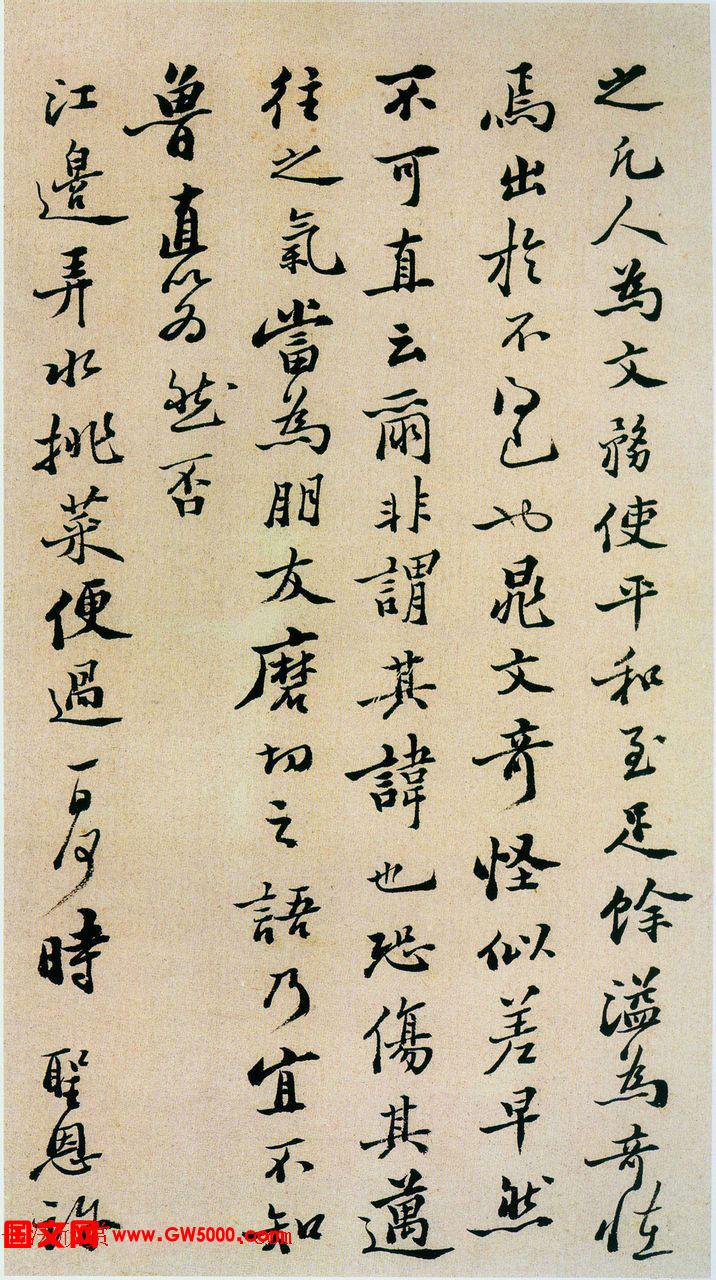 之凡人為文務使平和至足餘溢為奇怪
焉出於不得已也晁文奇怪似差早然
不可直云爾非謂其諱也恐傷其邁
往之氣當為朋友磨切之語乃宜不知
魯直以為然否
江邊弄水挑菜便過一日何時 聖恩許
国文网 www.GW5000.com